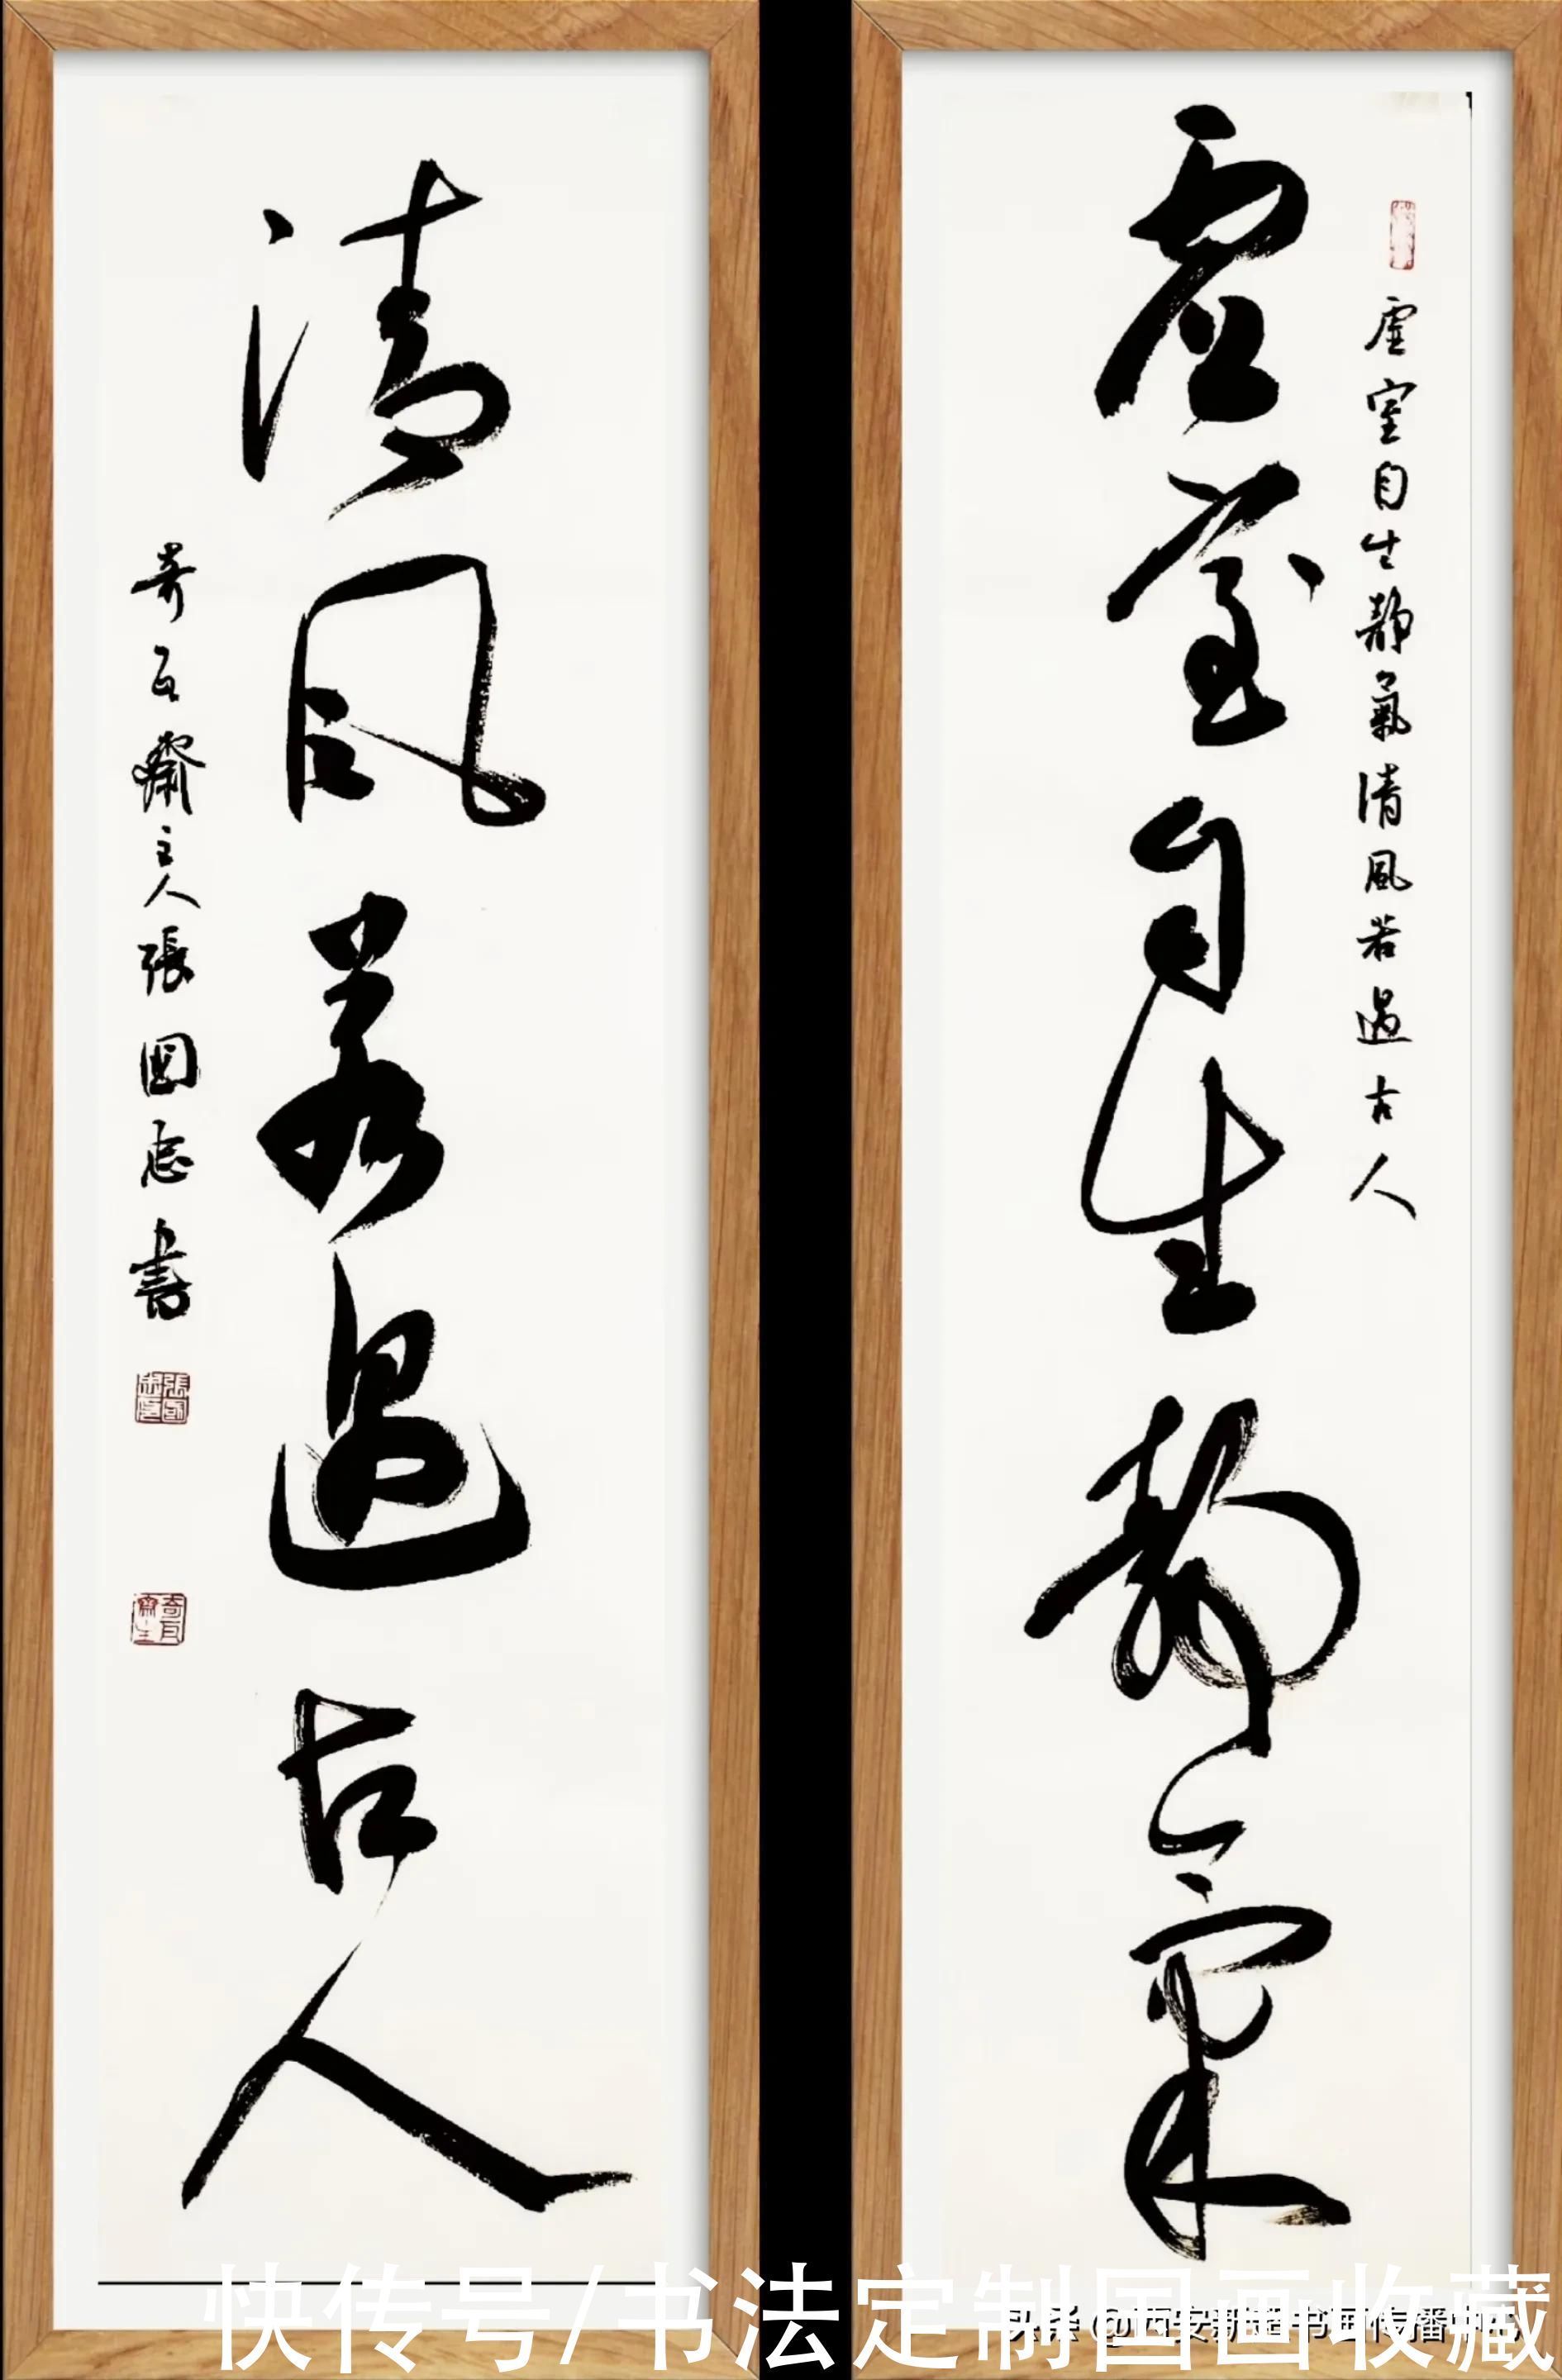 虚室自生静氣清風若遇古人
虚室自生静氣
清风若遇古人
奇石齋主人張國志書
快传号/书法定制国画收藏